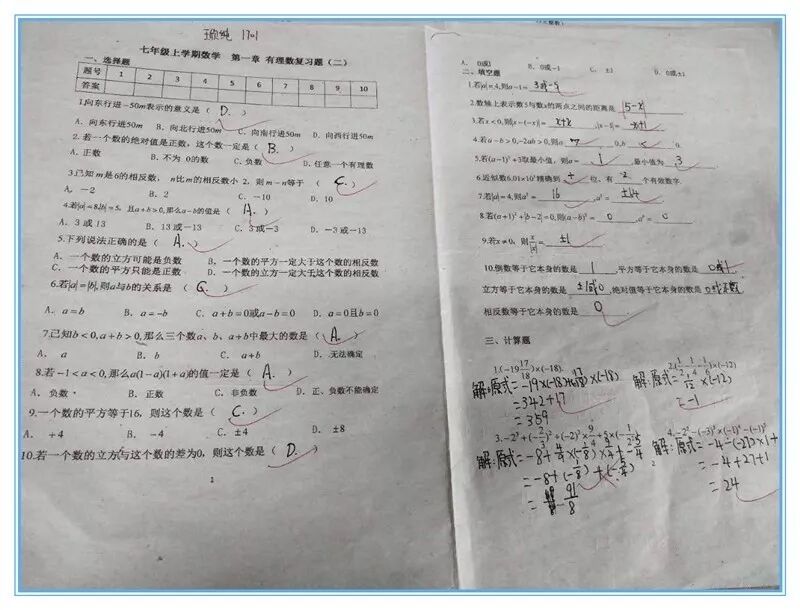 1701
七年级上学期数学 第一章 有理数复习题（二）
一、选择题
题号 1 2 3 4 5 6 7 8 9 10
答案
1.向东行进-50m表示的意义是（ D. ）
A．向东行进50m B．向北行进50m C．向南行进50m D．向西行进50m
2．若一个数的绝对值是正数，这个数一定是（ B. ）
A．正数 B．不为 0的数 C．负数 D．任意一个有理数
3.已知 m是6的相反数， n比m的相反数小 2，则 m-n等于 （ C. ）
A．-2 B．2 C．-10 D．10
4.若|a|=8,|b|=5，且a+b>0,那么a-b的值是（ A. ）
A．3 或 13 B．13 或-13 C．3 或-3 D．-3 或-13
5.下列说法正确的是（ A. ）
A．一个数的立方可能是负数 B．一个数的平方一定大于这个数的相反数
C．一个数的平方只能是正数 D．一个数的立方一定大于这个数的相反数
6.若|a|=|b|,则a与b的关系是（ C. ）
A．a=b B．a=-b C．a+b=0或a-b=0 D．a=0且b=0
7.已知b<0,a+b>0,那么三个数a、b、a+b中最大的数是（ A. ）
A． a B．b C．a+b D．无法确定
8.若-1<a<0,那么a(1-a)(1+a)的值一定是（ A. ）
A．负数 B．正数 C．非负数 D．正、负数不能确定
9.一个数的平方等于16，则这个数是（ C. ）
A． +4 B．-4 C．±4 D．±8
10.若一个数的立方与这个数的差为0，则这个数是（ D. ）
A．0或1 B．0或-1 C．±1 D．0或±1
二、填空题
1.若|a|=4,则a-1= 3或-5
2.数轴上表示数5与数x的两点之间的距离是 |5-x|
3.若x<0,则|x-(-x)|=
4.若a-b>0,-2ab>0,则a
5.若(a-1)²+3取最小值，则a= 1 ,最小值为 3
6.近似数6.01×10³精确到 位，有 个有效数字.
7.若|a|=4,则a²= 16 ,a³= ±64
8.若(a+1)²+|b-2|=0,则(a-b)³=
9.若x≠0，则 x/|x| = ±1
10.倒数等于它本身的数是 1 ,平方等于它本身的数是
立方等于它本身的数是 ±1或0 ,绝对值等于它本身的数是
相反数等于它本身的数是 0
三、计算题
1.(-19 17/18)×(-18)
解:原式=-19×(-18)+17/18×(-18)
=342+17
=359
×(-12)
解:原式= ×(-12)
=-1
解:原式=
4.-2²-(-3)³×(-1)⁴-(-1)⁵
解:原式=-4-(-27)×1+1
=-4+27+1
=24